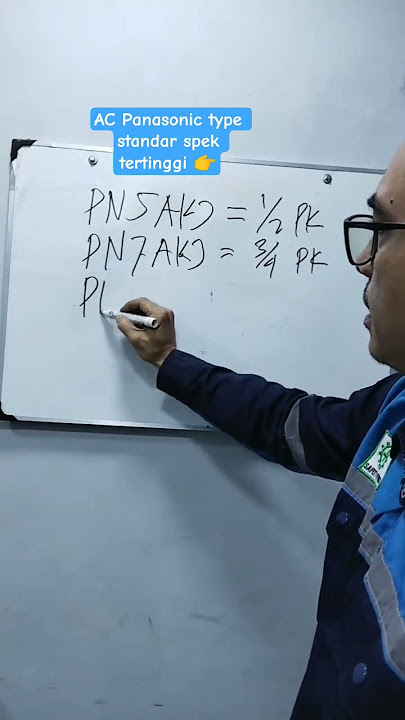 AC Panasonic type
standar spek
tertinggi 👉
PN5AKJ = 1/2 PK
PN7AKJ = 3/4 PK
P